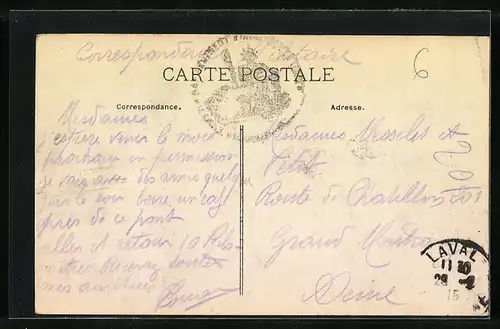 Correspondance Militaire
6
CARTE POSTALE
Correspondance.
Adresse.
Mesdames
j'espère venir le mois
prochain en permission
je vais avec des amis quelques
fois le soir boire un
près de ce pont
aller et retour 10 Kilo-
mètres Recevez toutes
mes amitiés
Mesdames Messelet et
Petit
Route de Chatillon
Grand Montrouge
Seine
LAVAL
15